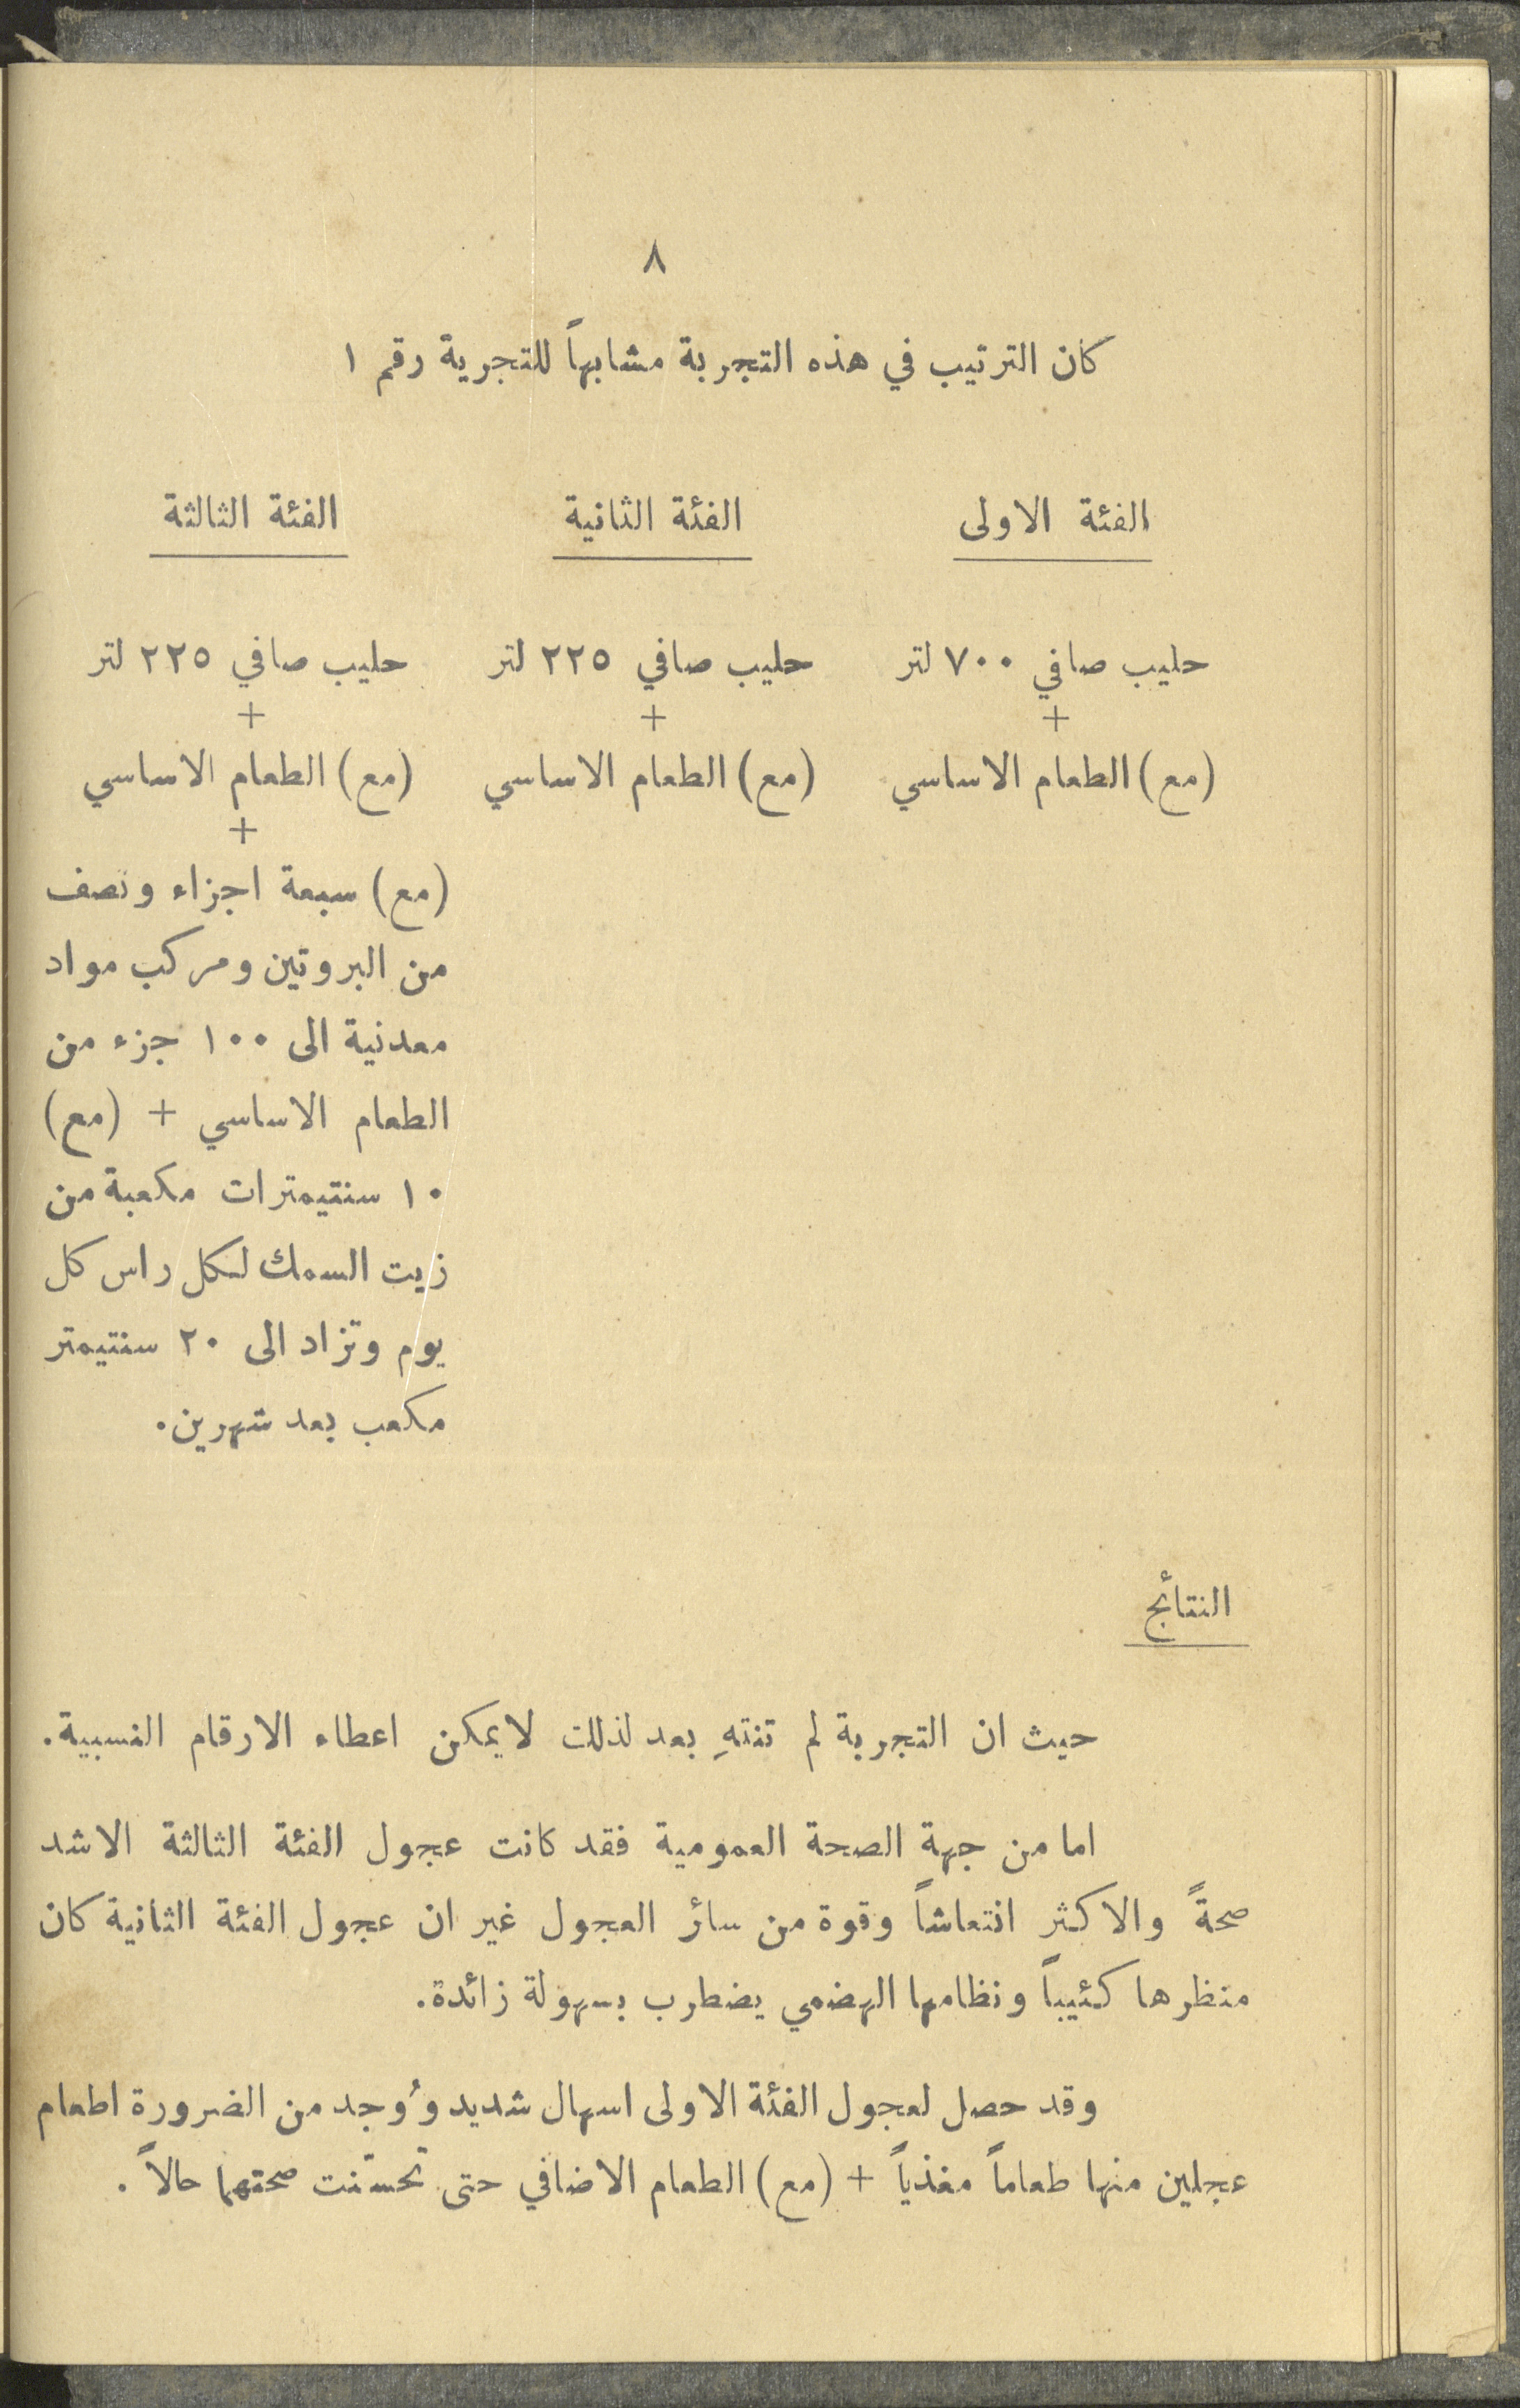 ٨
كان الترتيب في هذه التجربة مشابهاً للتجربة رقم ١
الفئة الاولى
الفئة الثانية
الفئة الثالثة
حليب صافي ٧٠٠ لتر
+
(مع) الطعام الاساسي
حليب صافي ٢٢٥ لتر
+
(مع) الطعام الاساسي
حليب صافي ٢٢٥ لتر
+
(مع) الطعام الاساسي
+
(مع) سبعة اجزاء ونصف
من البروتين ومركب مواد
معدنية الى ١٠٠ جزء من
الطعام الاساسي + (مع)
١٠ سنتيمترات مكعبة من
زيت السمك لكل راس كل
يوم وتزاد الى ٢٠ سنتيمتر
مكعب بعد شهرين.
النتائج
حيث ان التجربة لم تنتهِ بعد لذلك لا يمكن اعطاء الارقام النسبية.
اما من جهة الصحة العمومية فقد كانت عجول الفئة الثالثة الاشد
صحةً والاكثر انتعاشاً وقوة من سائر العجول غير ان عجول الفئة الثانية كان
منظرها كئيباً ونظامها الهضمي يضطرب بسهولة زائدة.
وقد حصل لعجول الفئة الاولى اسهال شديد وُوجد من الضرورة اطعام
عجلين منها طعاماً مغذياً + (مع) الطعام الاضافي حتى تحسّنت صحتهما حالاً.